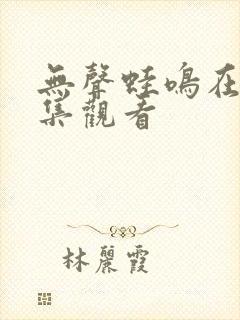 無聲蛙鳴在
集觀看
林麗霞